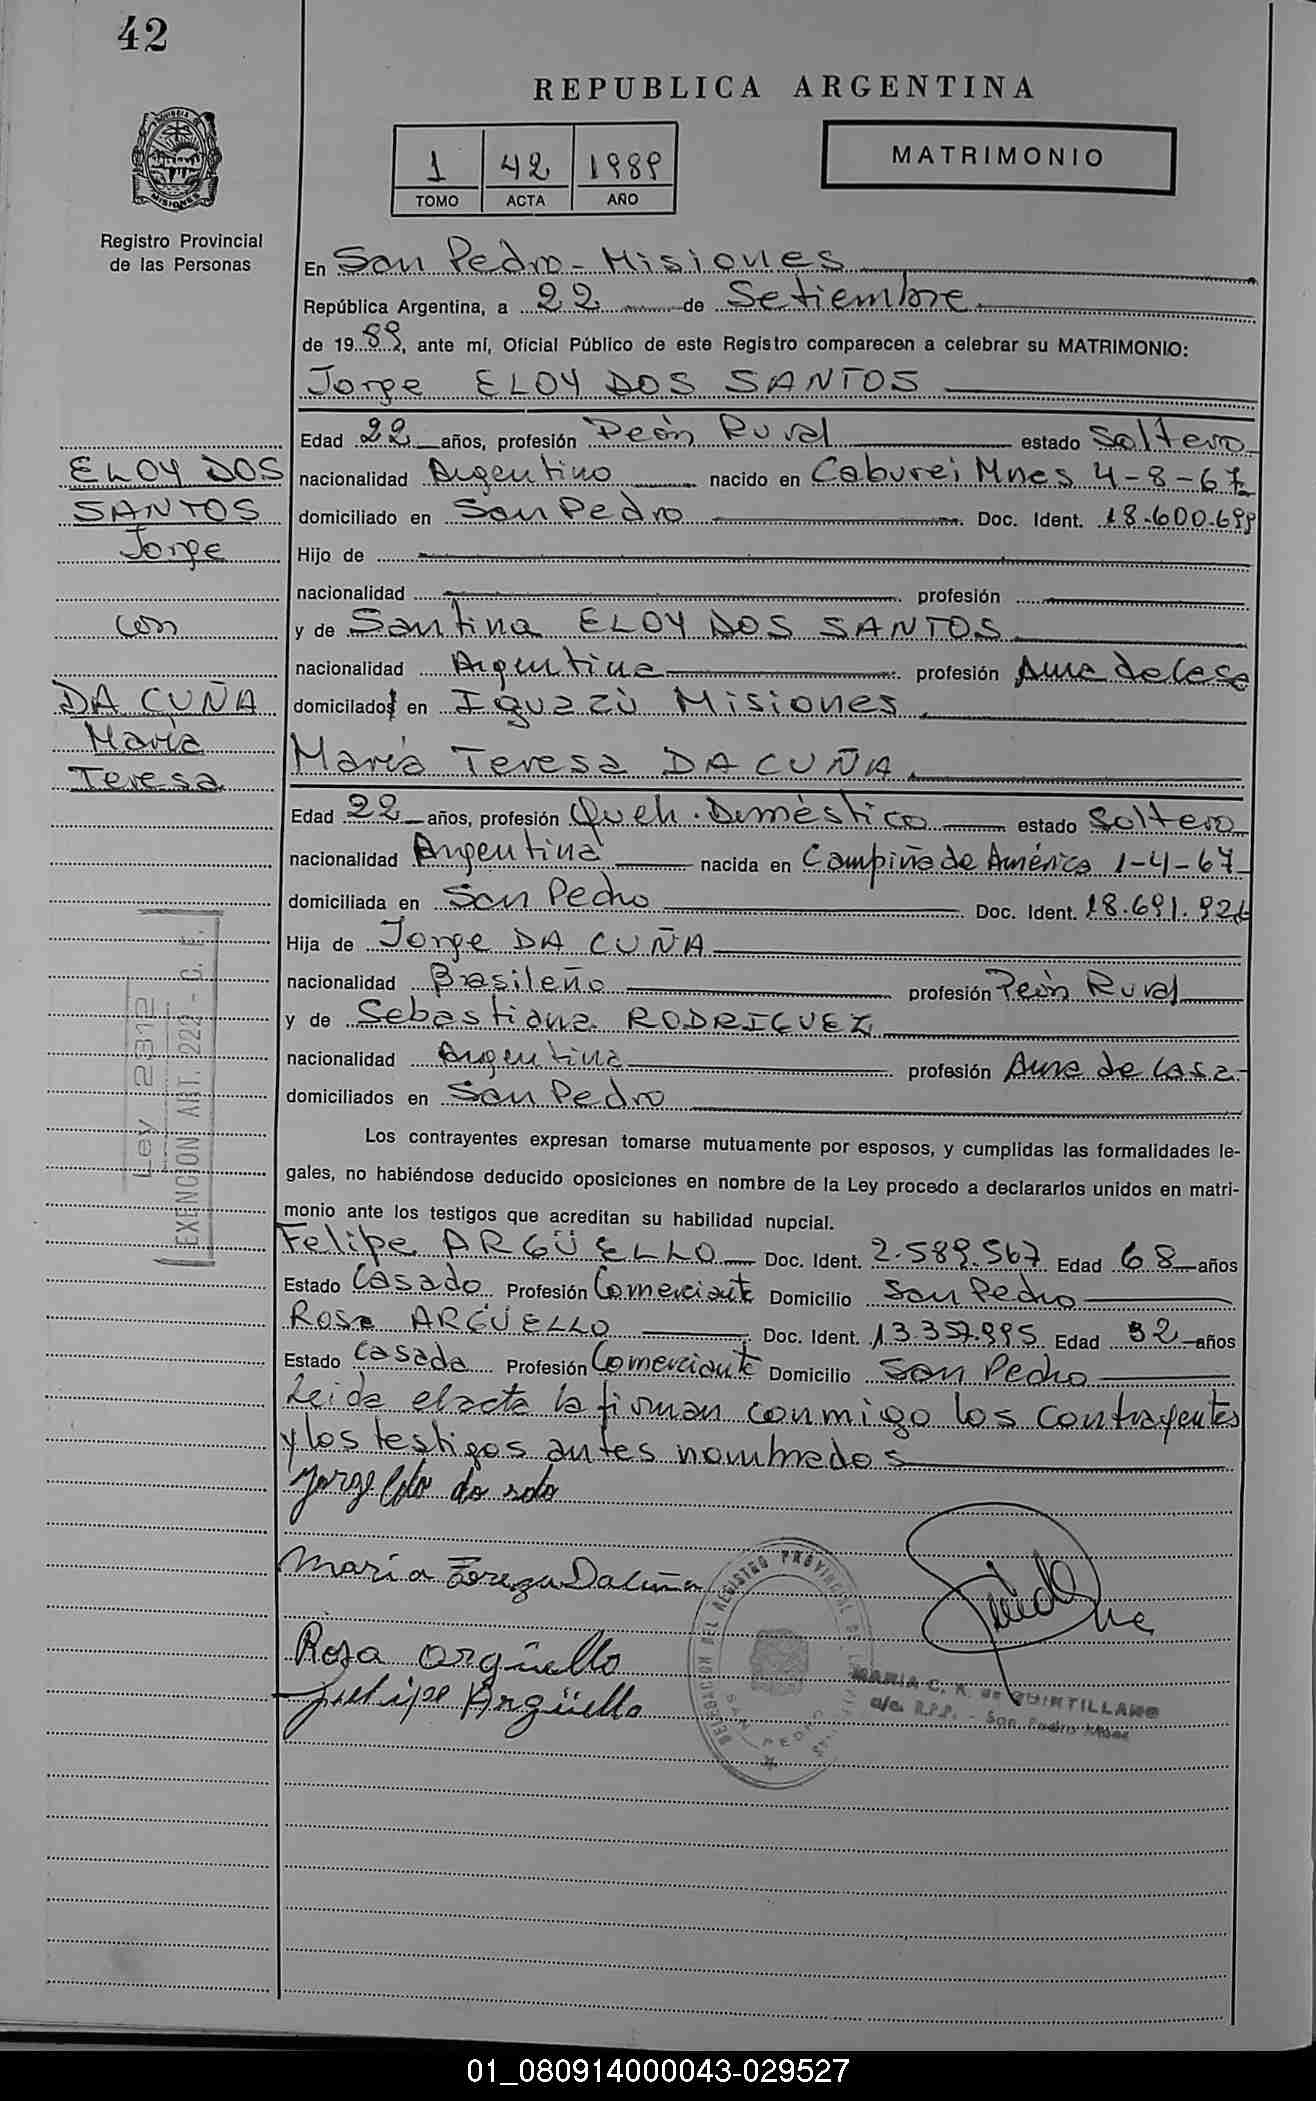 42
REPUBLICA ARGENTINA
1 42 1989
TOMO ACTA AÑO
MATRIMONIO
PROVINCIA DE
MISIONES
Registro Provincial
de las Personas
En San Pedro - Misiones
República Argentina, a 22 de Setiembre
de 1989, ante mí, Oficial Público de este Registro comparecen a celebrar su MATRIMONIO:
Jorge ELOY DOS SANTOS
Edad 22 años, profesión Peón Rural estado Soltero
nacionalidad Argentino nacido en Caburei Mnes 4-8-67
domiciliado en San Pedro Doc. Ident. 18.600.699
Hijo de
nacionalidad profesión
y de Santina ELOY DOS SANTOS
nacionalidad Argentina profesión Ama de Casa
domicilados en Iguazú Misiones
María Teresa DA CUÑA
Edad 22 años, profesión Queh. Doméstico estado Soltera
nacionalidad Argentina nacida en Campiña de América 1-4-67
domiciliada en San Pedro Doc. Ident. 18.691.926
Hija de Jorge DA CUÑA
nacionalidad Brasileño profesión Peón Rural
y de Sebastiana RODRIGUEZ
nacionalidad Argentina profesión Ama de Casa
domiciliados en San Pedro
Los contrayentes expresan tomarse mutuamente por esposos, y cumplidas las formalidades le-
gales, no habiéndose deducido oposiciones en nombre de la Ley procedo a declararlos unidos en matri-
monio ante los testigos que acreditan su habilidad nupcial.
Felipe ARGÜELLO Doc. Ident. 2.589.567 Edad 68 años
Estado Casado Profesión Comerciante Domicilio San Pedro
Rosa ARGÜELLO Doc. Ident. 13.357.995 Edad 32 años
Estado Casada Profesión Comerciante Domicilio San Pedro
Leida el acta la firman conmigo los contrayentes
y los testigos antes nombrados
ELOY DOS
SANTOS
Jorge
con
DA CUÑA
María
Teresa
Ley 2312
EXENCION ART. 222 - C. F.
María Tereza Da Cuña
Rosa Argüello
Felipe Argüello
DELEGACION DEL REGISTRO PROVINCIAL DE LAS
SAN PEDRO
MARIA C. K. de QUINTILLANO
a/c. R.P.P. - San Pedro Mnes
01_080914000043-029527